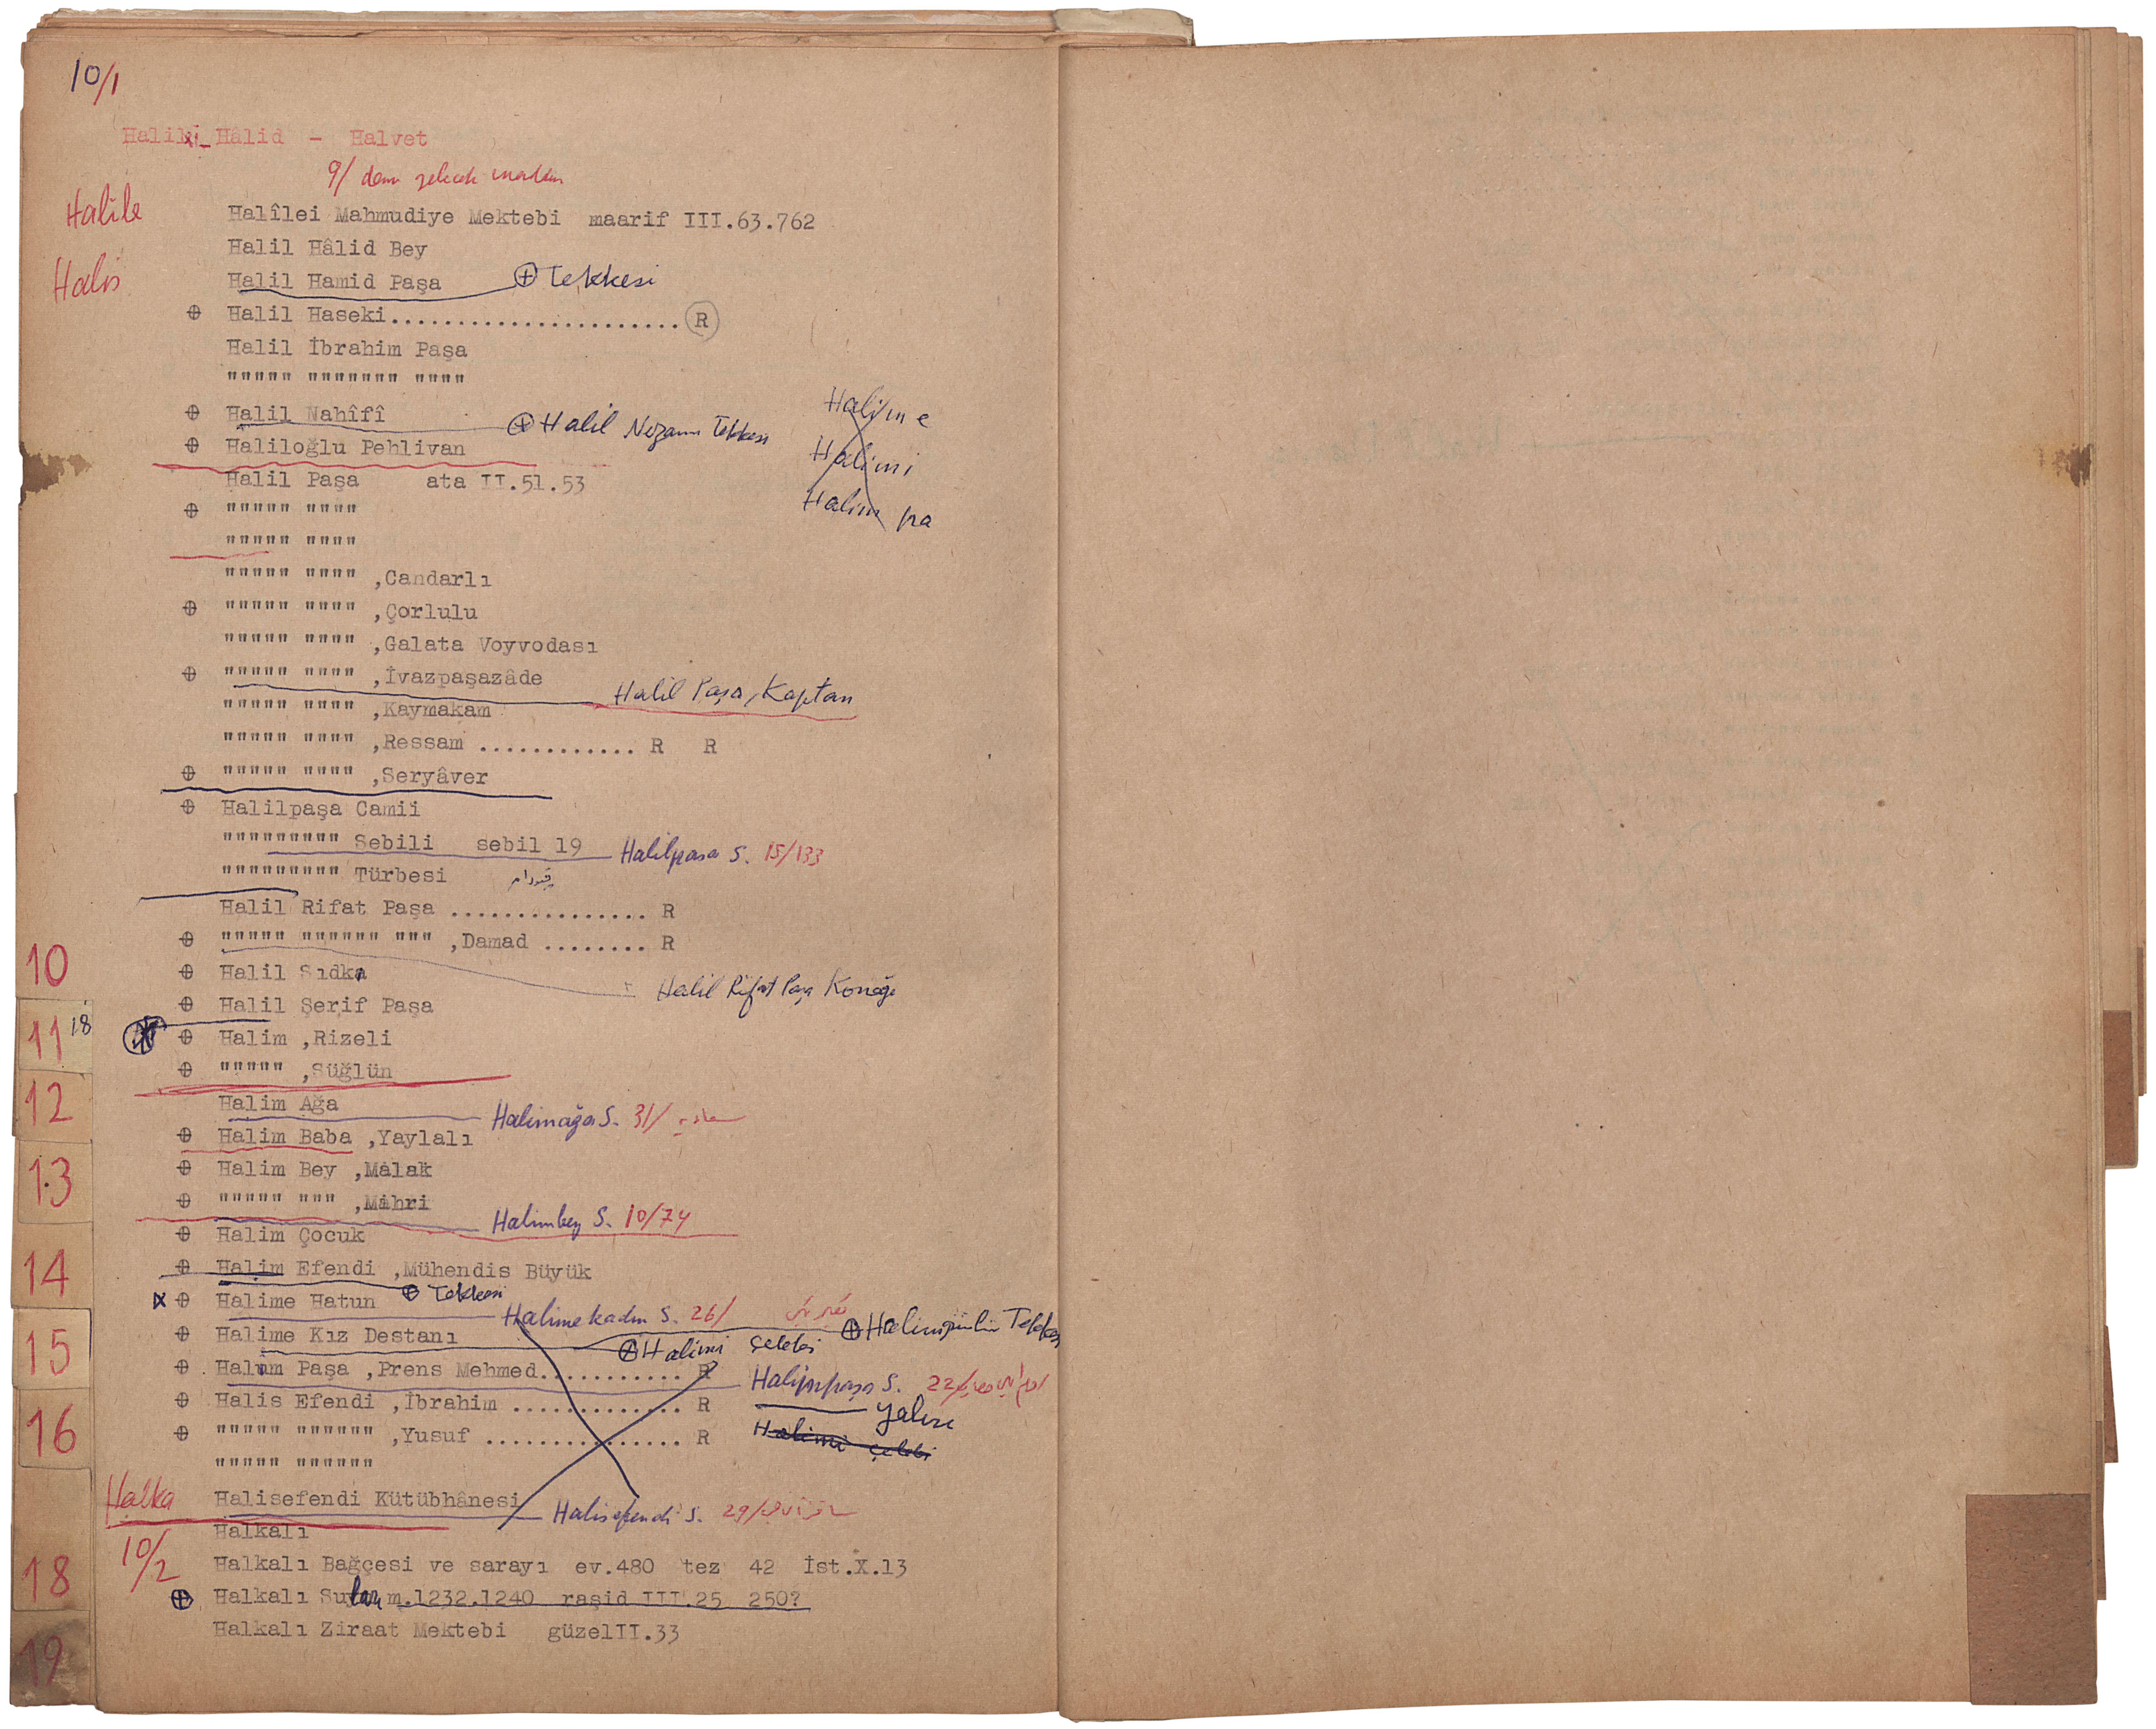 10/1
Halil Hâlid - Halvet
9/ dan gelecek
Halîle
Halîlei Mahmudiye Mektebi maarif III.63.762
Halil Hâlid Bey
Halis
Halil Hamid Paşa ⊕ Tekkesi
⊕ Halil Haseki...................... R
Halil İbrahim Paşa
""""" """"""" """"
⊕ Halil Nahîfî ⊕ Halil Tekkesi
Halime
⊕ Haliloğlu Pehlivan
Halimi
Halil Paşa ata II.51.53
Halim pa
⊕ """"" """"
""""" """"
""""" """" ,Candarlı
⊕ """"" """" ,Çorlulu
""""" """" ,Galata Voyvodası
⊕ """"" """" ,İvazpaşazâde
Halil Paşa, Kaptan
""""" """" ,Kaymakam
""""" """" ,Ressam ............ R R
⊕ """"" """" ,Seryâver
⊕ Halilpaşa Camii
""""""""" Sebili sebil 19 Halilpaşa S. 15/133
""""""""" Türbesi
Halil Rifat Paşa ............... R
⊕ """"" """""" """ ,Damad ........ R
10
⊕ Halil Sıdkı
Halil Rifat Paşa Konağı
⊕ Halil Şerif Paşa
11 18
⊕ Halim ,Rizeli
⊕ """"" ,Süğlün
12
Halim Ağa Halimağa S. 31/
⊕ Halim Baba ,Yaylalı
13
⊕ Halim Bey ,Malak
⊕ """"" """ ,Mihri
Halimbey S. 10/74
⊕ Halim Çocuk
14
⊕ Halim Efendi ,Mühendis Büyük
x ⊕ Halime Hatun ⊕ Tekkesi
Halimekadın S. 26/
15
⊕ Halime Kız Destanı ⊕ Halimi Çelebi
⊕ Tekkesi
⊕ Halim Paşa ,Prens Mehmed........... R Halimpaşa S. 22/
⊕ Halis Efendi ,İbrahim ............. R
Yalısı
16
⊕ """"" """""" ,Yusuf ............... R Halimi Çelebi
""""" """"""
Halka
Halisefendi Kütübhânesi Halisefendi S. 29/
Halkalı
10/2
18
Halkalı Bağçesi ve sarayı ev.480 tez 42 İst.X.13
⊕ Halkalı Suları m.1232.1240 raşid III.25 250?
Halkalı Ziraat Mektebi güzelII.33
19